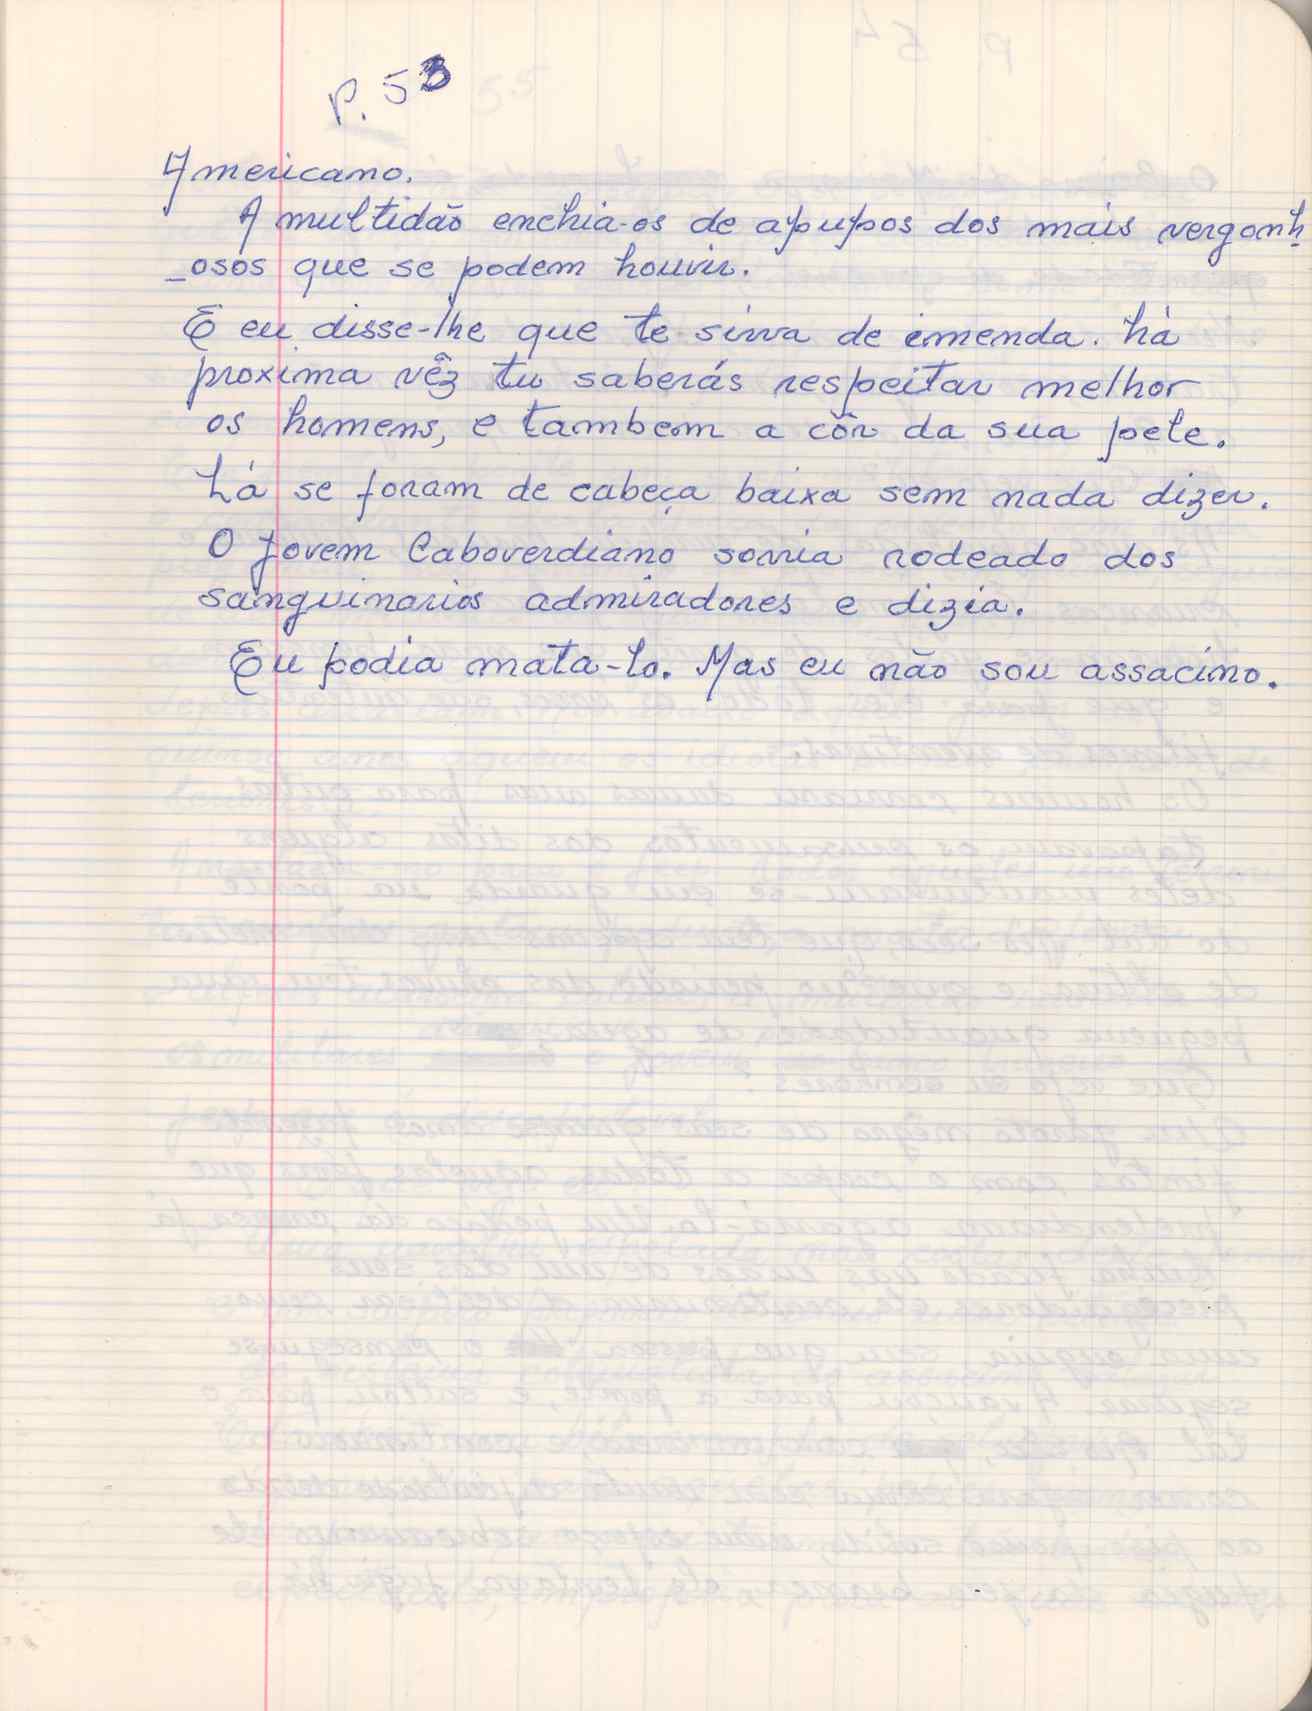 P. 53
Americano.
A multidão enchia-os de apupos dos mais vergonh
_osos que se podem houvir.
E eu disse-lhe que te sirva de emenda. há
proxima vêz tu saberás respeitar melhor
os homens, e tambem a côr da sua pele.
Lá se foram de cabeça baixa sem nada dizer.
O jovem Caboverdiano sorria rodeado dos
sanguinarios admiradores e dizia.
Eu podia mata-lo. Mas eu não sou assacino.